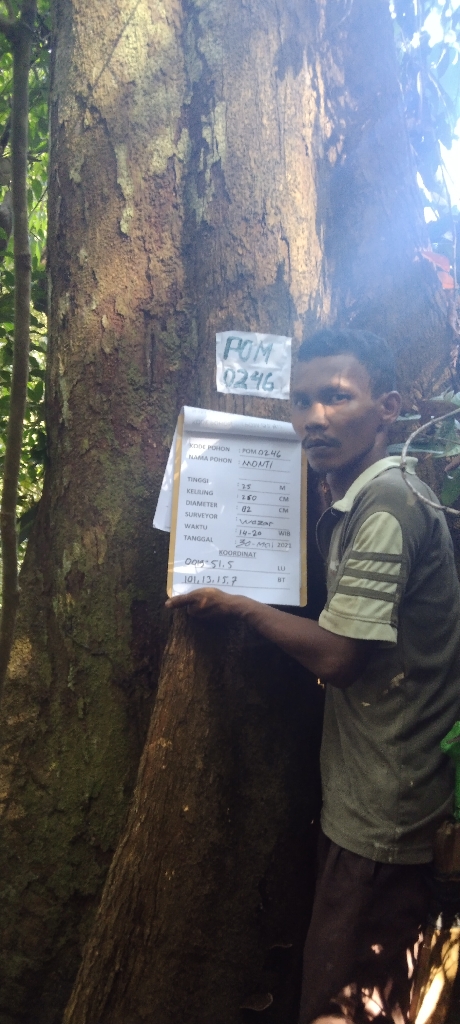 POM
0246
KODE POHON : POM 0246
NAMA POHON : MONTI
TINGGI : M
KELILING : 260 CM
DIAMETER : 82 CM
SURVEYOR :
WAKTU : 14-20 WIB
TANGGAL : 30-MEI 2021
KOORDINAT
LU
101.13.15.7 BT